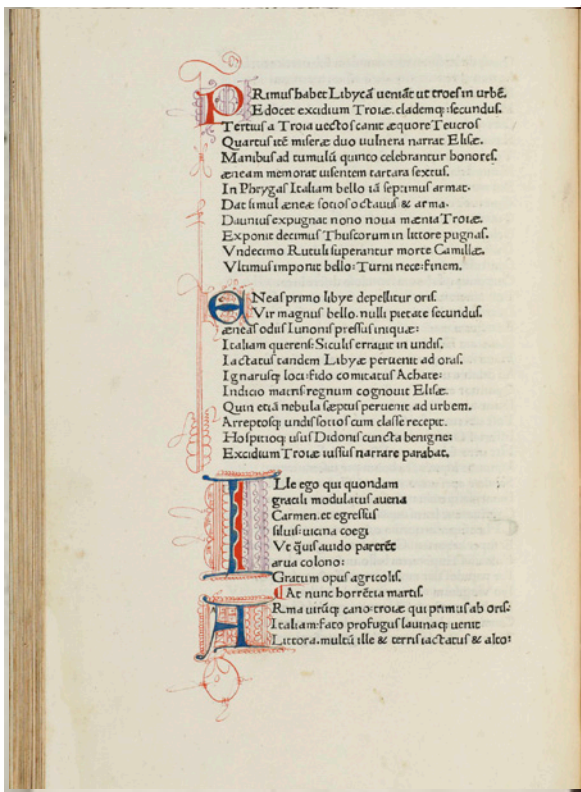 PRimus habet Libycā ueniāt ut troes in urbē.
Edocet excidium Troiæ. clademq; secundus.
Tertius a Troia uectos canit æquore Teucros
Quartus itē miseræ duo uulnera narrat Elisæ.
Manibus ad tumulū quinto celebrantur honores.
æneam memorat uisentem tartara sextus.
In Phrygas Italiam bello iā septimus armat.
Dat simul æneæ socios octauus & arma.
Daunius expugnat nono noua mænia Troiæ.
Exponit decimus Thuscorum in littore pugnas.
Vndecimo Rutuli superantur morte Camillæ.
Vltimus imponit bello: Turni nece: finem.
ENeas primo libye depellitur oris.
Vir magnus bello. nulli pietate secundus.
æneas odiis Iunonis pressus iniquæ:
Italiam querens: Siculis errauit in undis.
Iactatus tandem Libyæ peruenit ad oras.
Ignarusq; loci: fido comitatus Achate:
Indicio matris: regnum cognouit Elisæ.
Quin etiā nebula sæptus peruenit ad urbem.
Arreptosq; undis socios cum classe recepit.
Hospitioq; usus Didonis cuncta benigne:
Excidium Troiæ iussus narrare parabat.
ILle ego qui quondam
gracili modulatus auena
Carmen. et egressus
siluis: uicina coegi
Vt q̄uis auido parerēt
arua colono:
Gratum opus agricolis.
At nunc horrētia martis.
ARma uirūq; cano: troiæ qui primus ab oris:
Italiam: fato profugus lauinaq; uenit
Littora. multū ille & terris iactatus & alto: